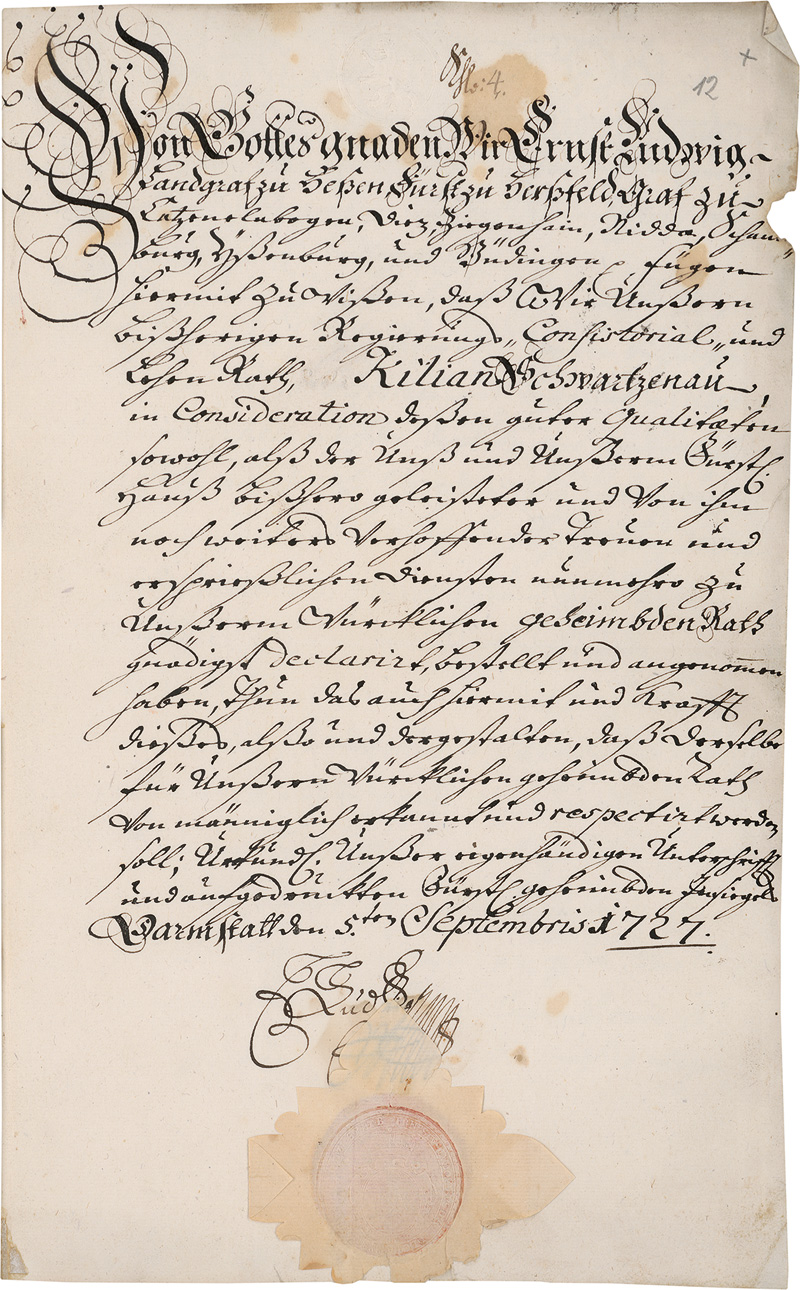 12
Von Gottes gnaden Wir Ernst Ludwig
Landgraf zu Heßen, Fürst zu Herßfeld, Graf zu
Catzenelnbogen, Dietz, Ziegenhain, Nidda, Schaum„
burg, Ysenburg, und Büdingen p. fügen
hiermit zu wißen, daß Wir Unßern
bißherigen Regierungs„ Consistorial„ und
Lehen Rath, Kilian Schwartzenau,
in Consideration deßen guter Qualitæten
sowohl, alß der Unß und Unßerm Fürstl.
Hauß bißhero geleisteter und von ihm
noch weiters verhoffender Treuen und
ersprießlichen Diensten nunmehro zu
Unßerm Würcklichen geheimbden Rath
gnädigst declarirt, bestellt und angenommen
haben, thun das auch hiermit und Krafft
dießes, alßo und dergestalten, daß derselbe
für Unßern Würcklichen geheimbden Rath
von männiglich erkannt und respectirt werden
soll; Urkundl. Unßer eigenhändigen Unterschrifft
und aufgedruckten Fürstl. geheimbden Insiegels
Darmstatt den 5.ten Septembris 1727.